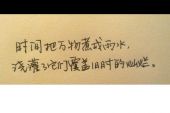 时间把万物煮成雨水，
浇灌了它们覆盖旧时的灿烂。